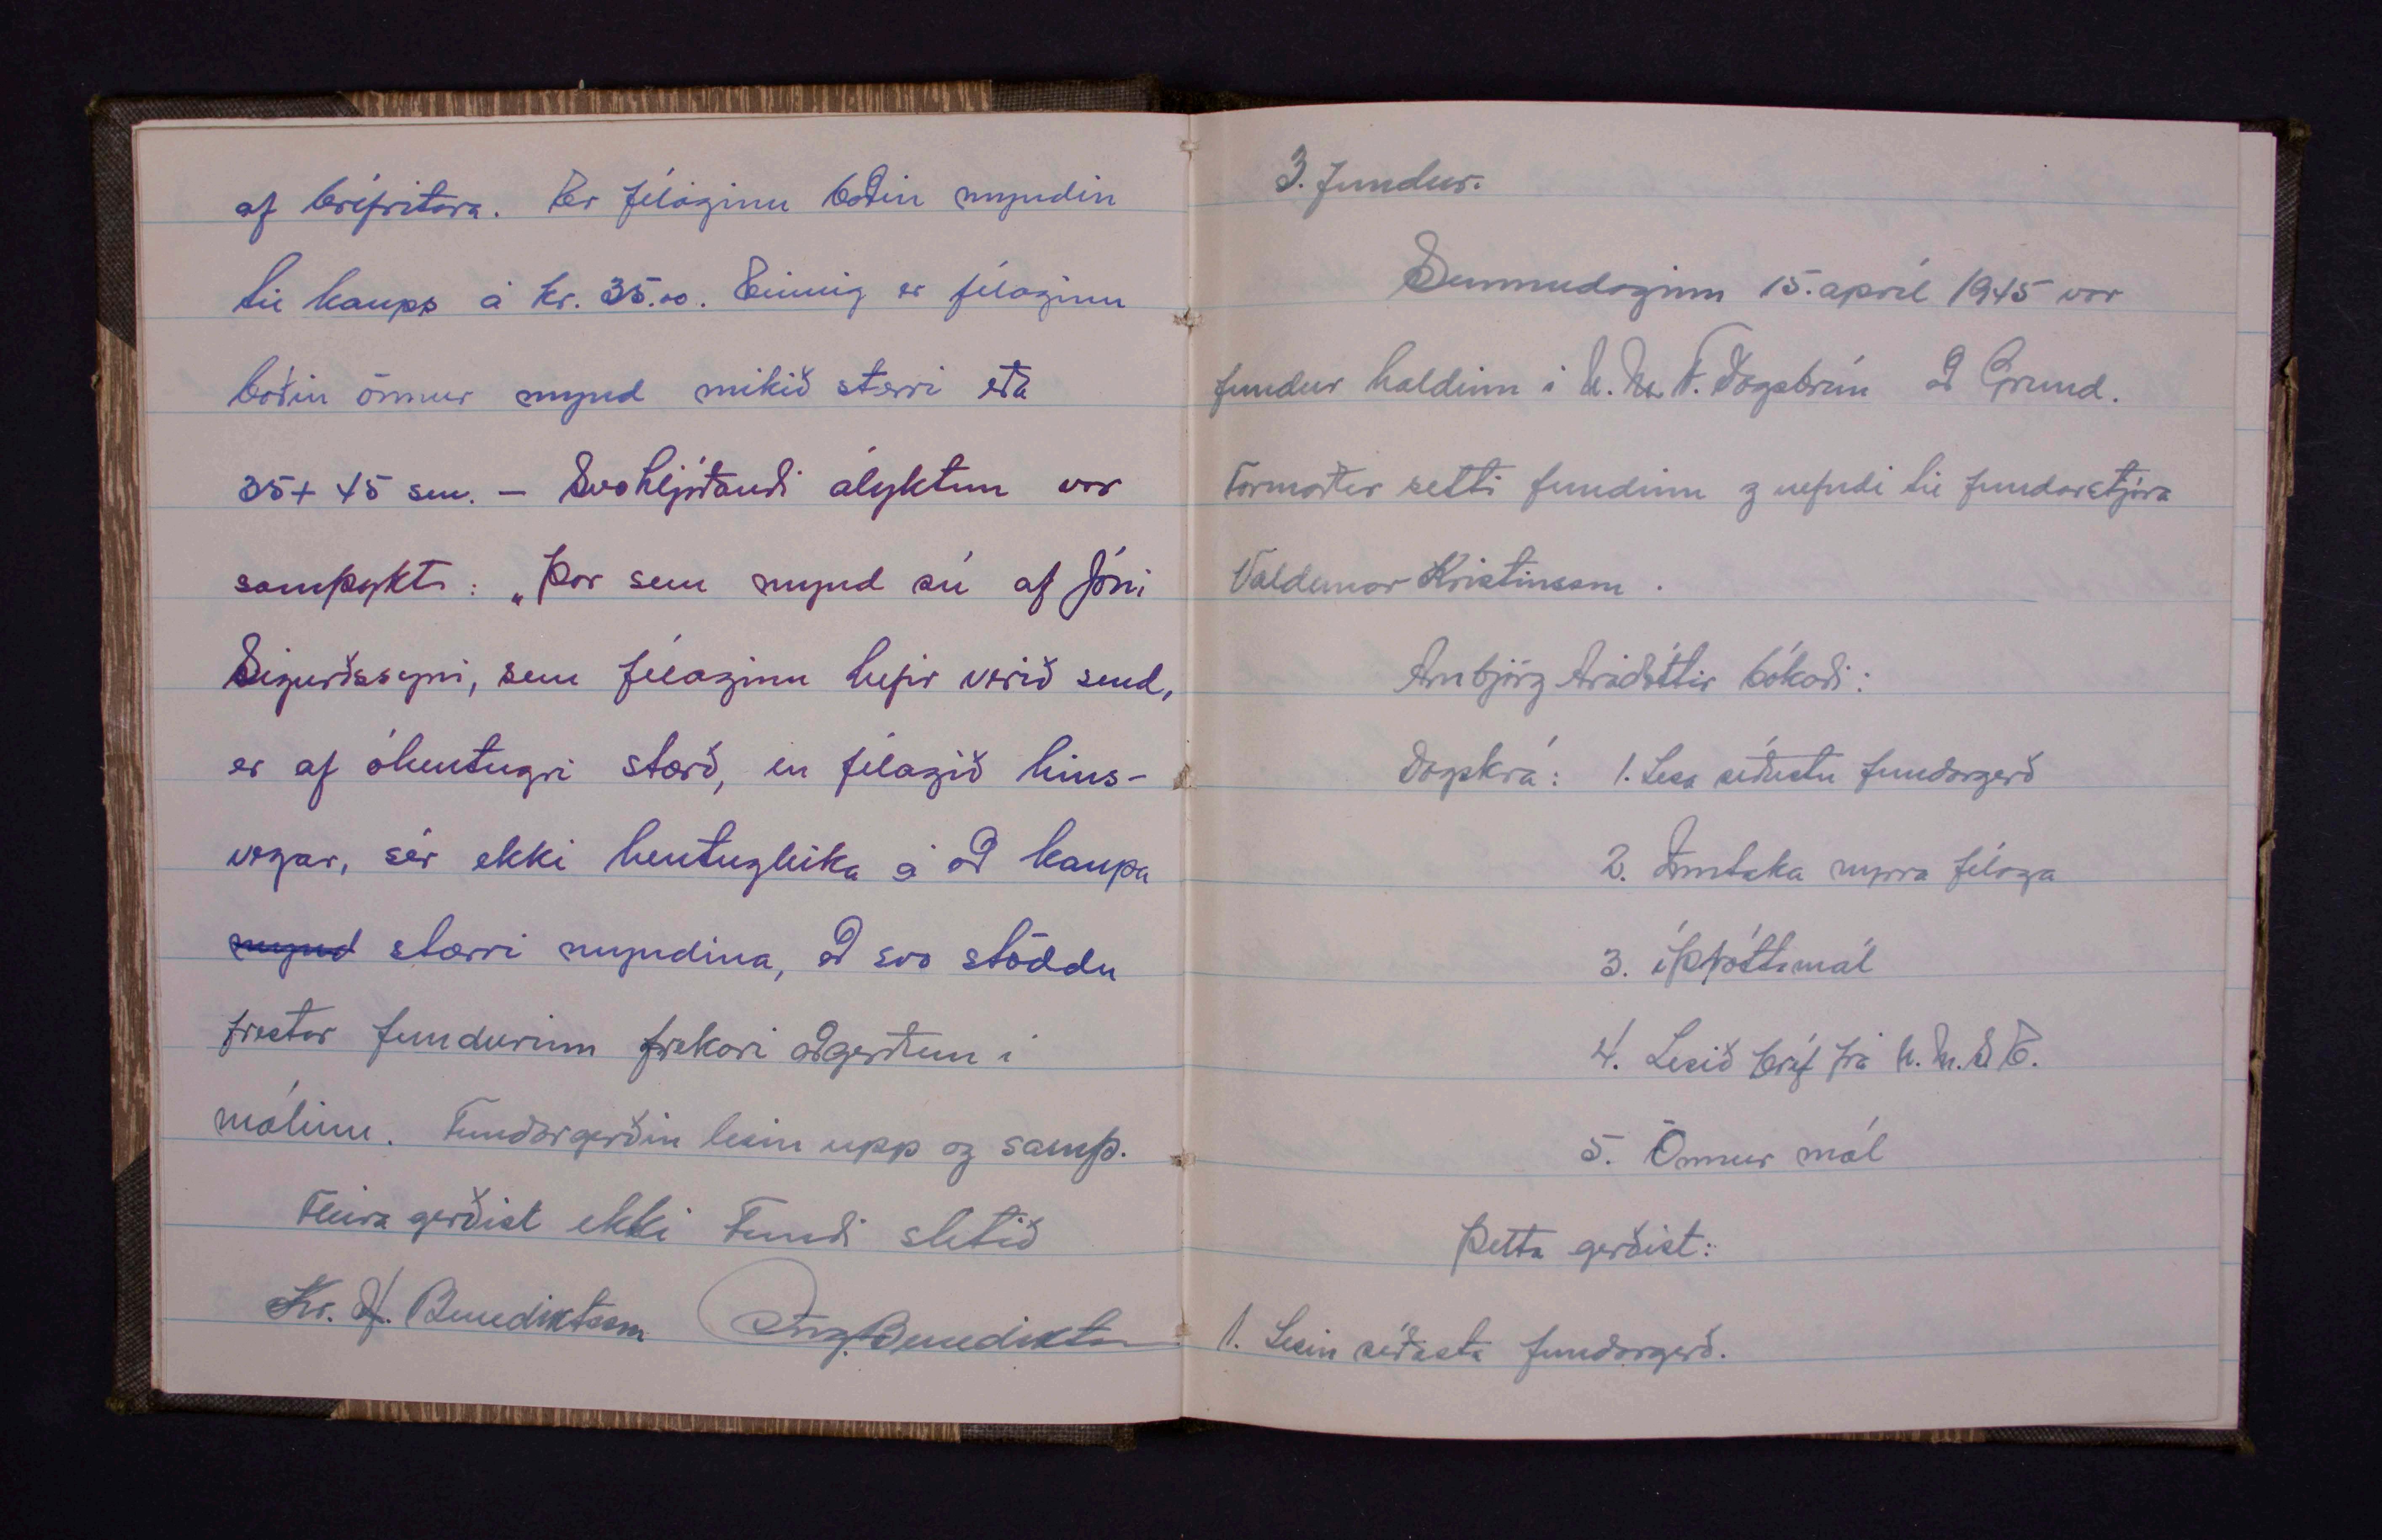 af bréfritara. Er félaginu boðin myndin
til kaups á kr. 35.00. Einnig er félaginu
boðin önnur mynd mikið stærri eða
35 + 45 sm. – Svohljóðandi ályktun var
samþykkt: „Þar sem mynd sú af Jóni
Sigurðssyni, sem félaginu hefir verið send,
er af óhentugri stærð, en félagið hins-
vegar, sér ekki hentugleika á að kaupa
mynd stærri myndina, að svo stöddu
frestar fundurinn frekari aðgerðum í
málinu. Fundargerðin lesin upp og samþ.
Fleira gerðist ekki Fundi slitið
Kr. H. Benediktsson Ing. Benediktss
3. fundur.
Sunnudaginn 15. apríl 1945 var
fundur haldinn í U. M. F. Dagsbrún að Grund.
Formaður setti fundinn og nefndi til fundarstjóra
Valdemar Kristinsson.
Arnbjörg Aradóttir bókaði:
Dagskrá: 1. Lesa síðustu fundargerð
2. Inntaka nyrra félaga
3. íþróttamál
4. Lesið bréf frá U. M. S. E.
5. Önnur mál
Þetta gerðist:
1. Lesin síðasta fundargerð.